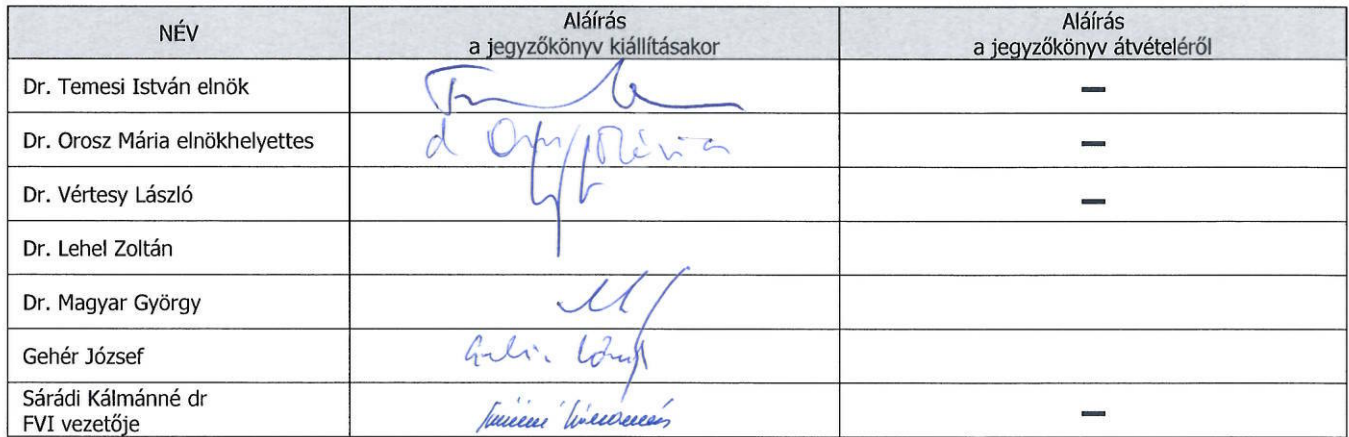 NÉV
Aláírás
a jegyzőkönyv kiállításakor
Aláírás
a jegyzőkönyv átvételéről
Dr. Temesi István elnök
—
Dr. Orosz Mária elnökhelyettes
—
Dr. Vértesy László
—
Dr. Lehel Zoltán
Dr. Magyar György
Gehér József
Sárádi Kálmánné dr
FVI vezetője
—